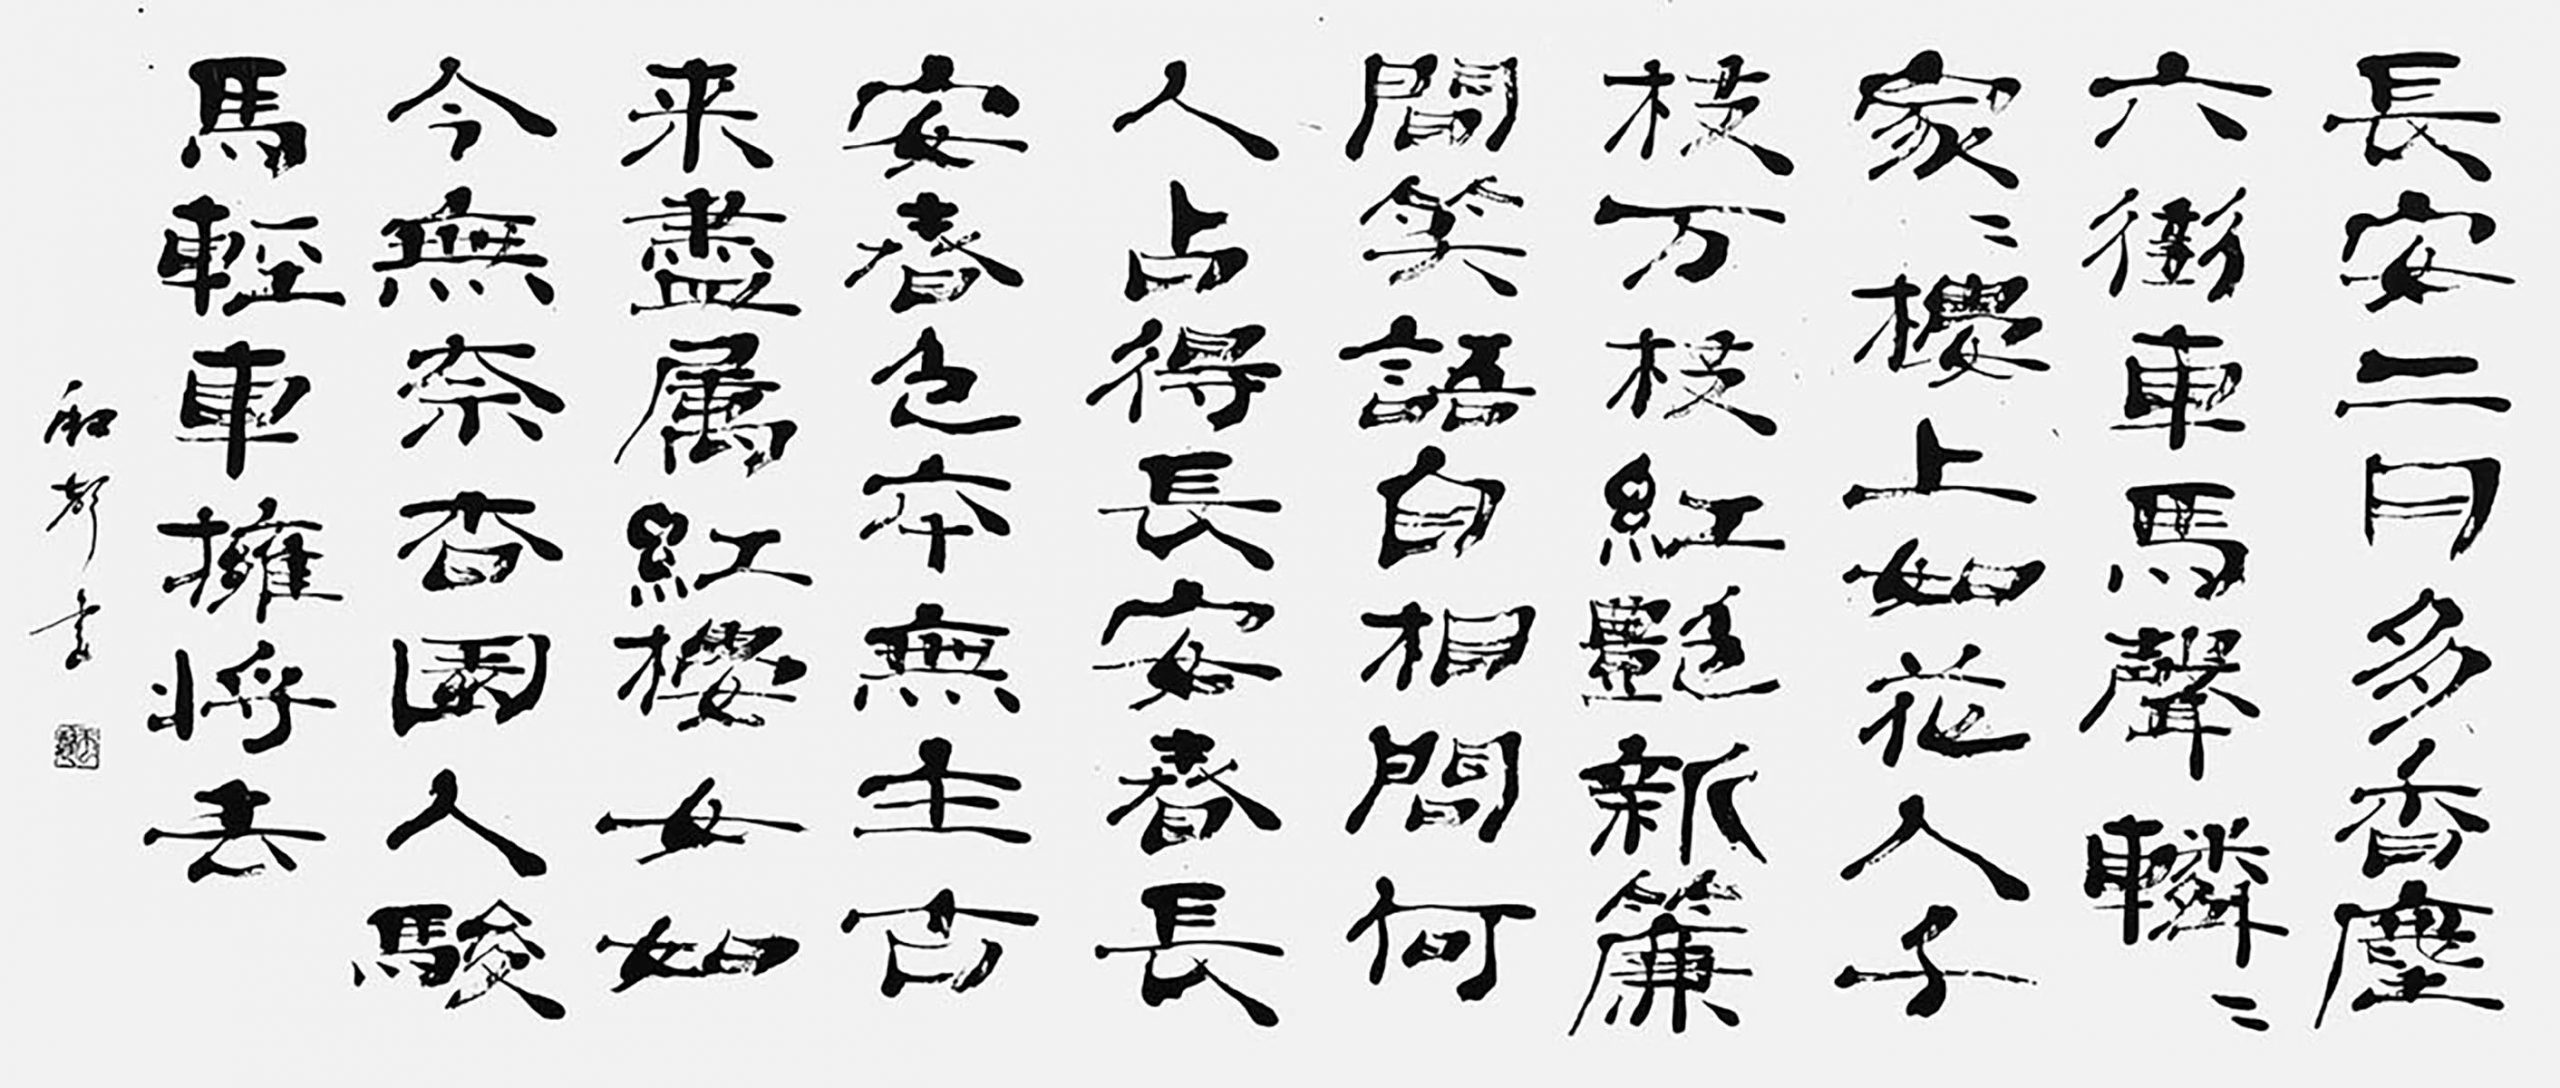 長安二月多香塵
六衝車馬聲轔〻
家〻樓上如花人千
枝万枝紅艷新簾
間笑語自相間何
人占得長安春長
安春色本無主古
来盡属紅樓女如
今無奈杏園人駿
馬輕車擁將去
書